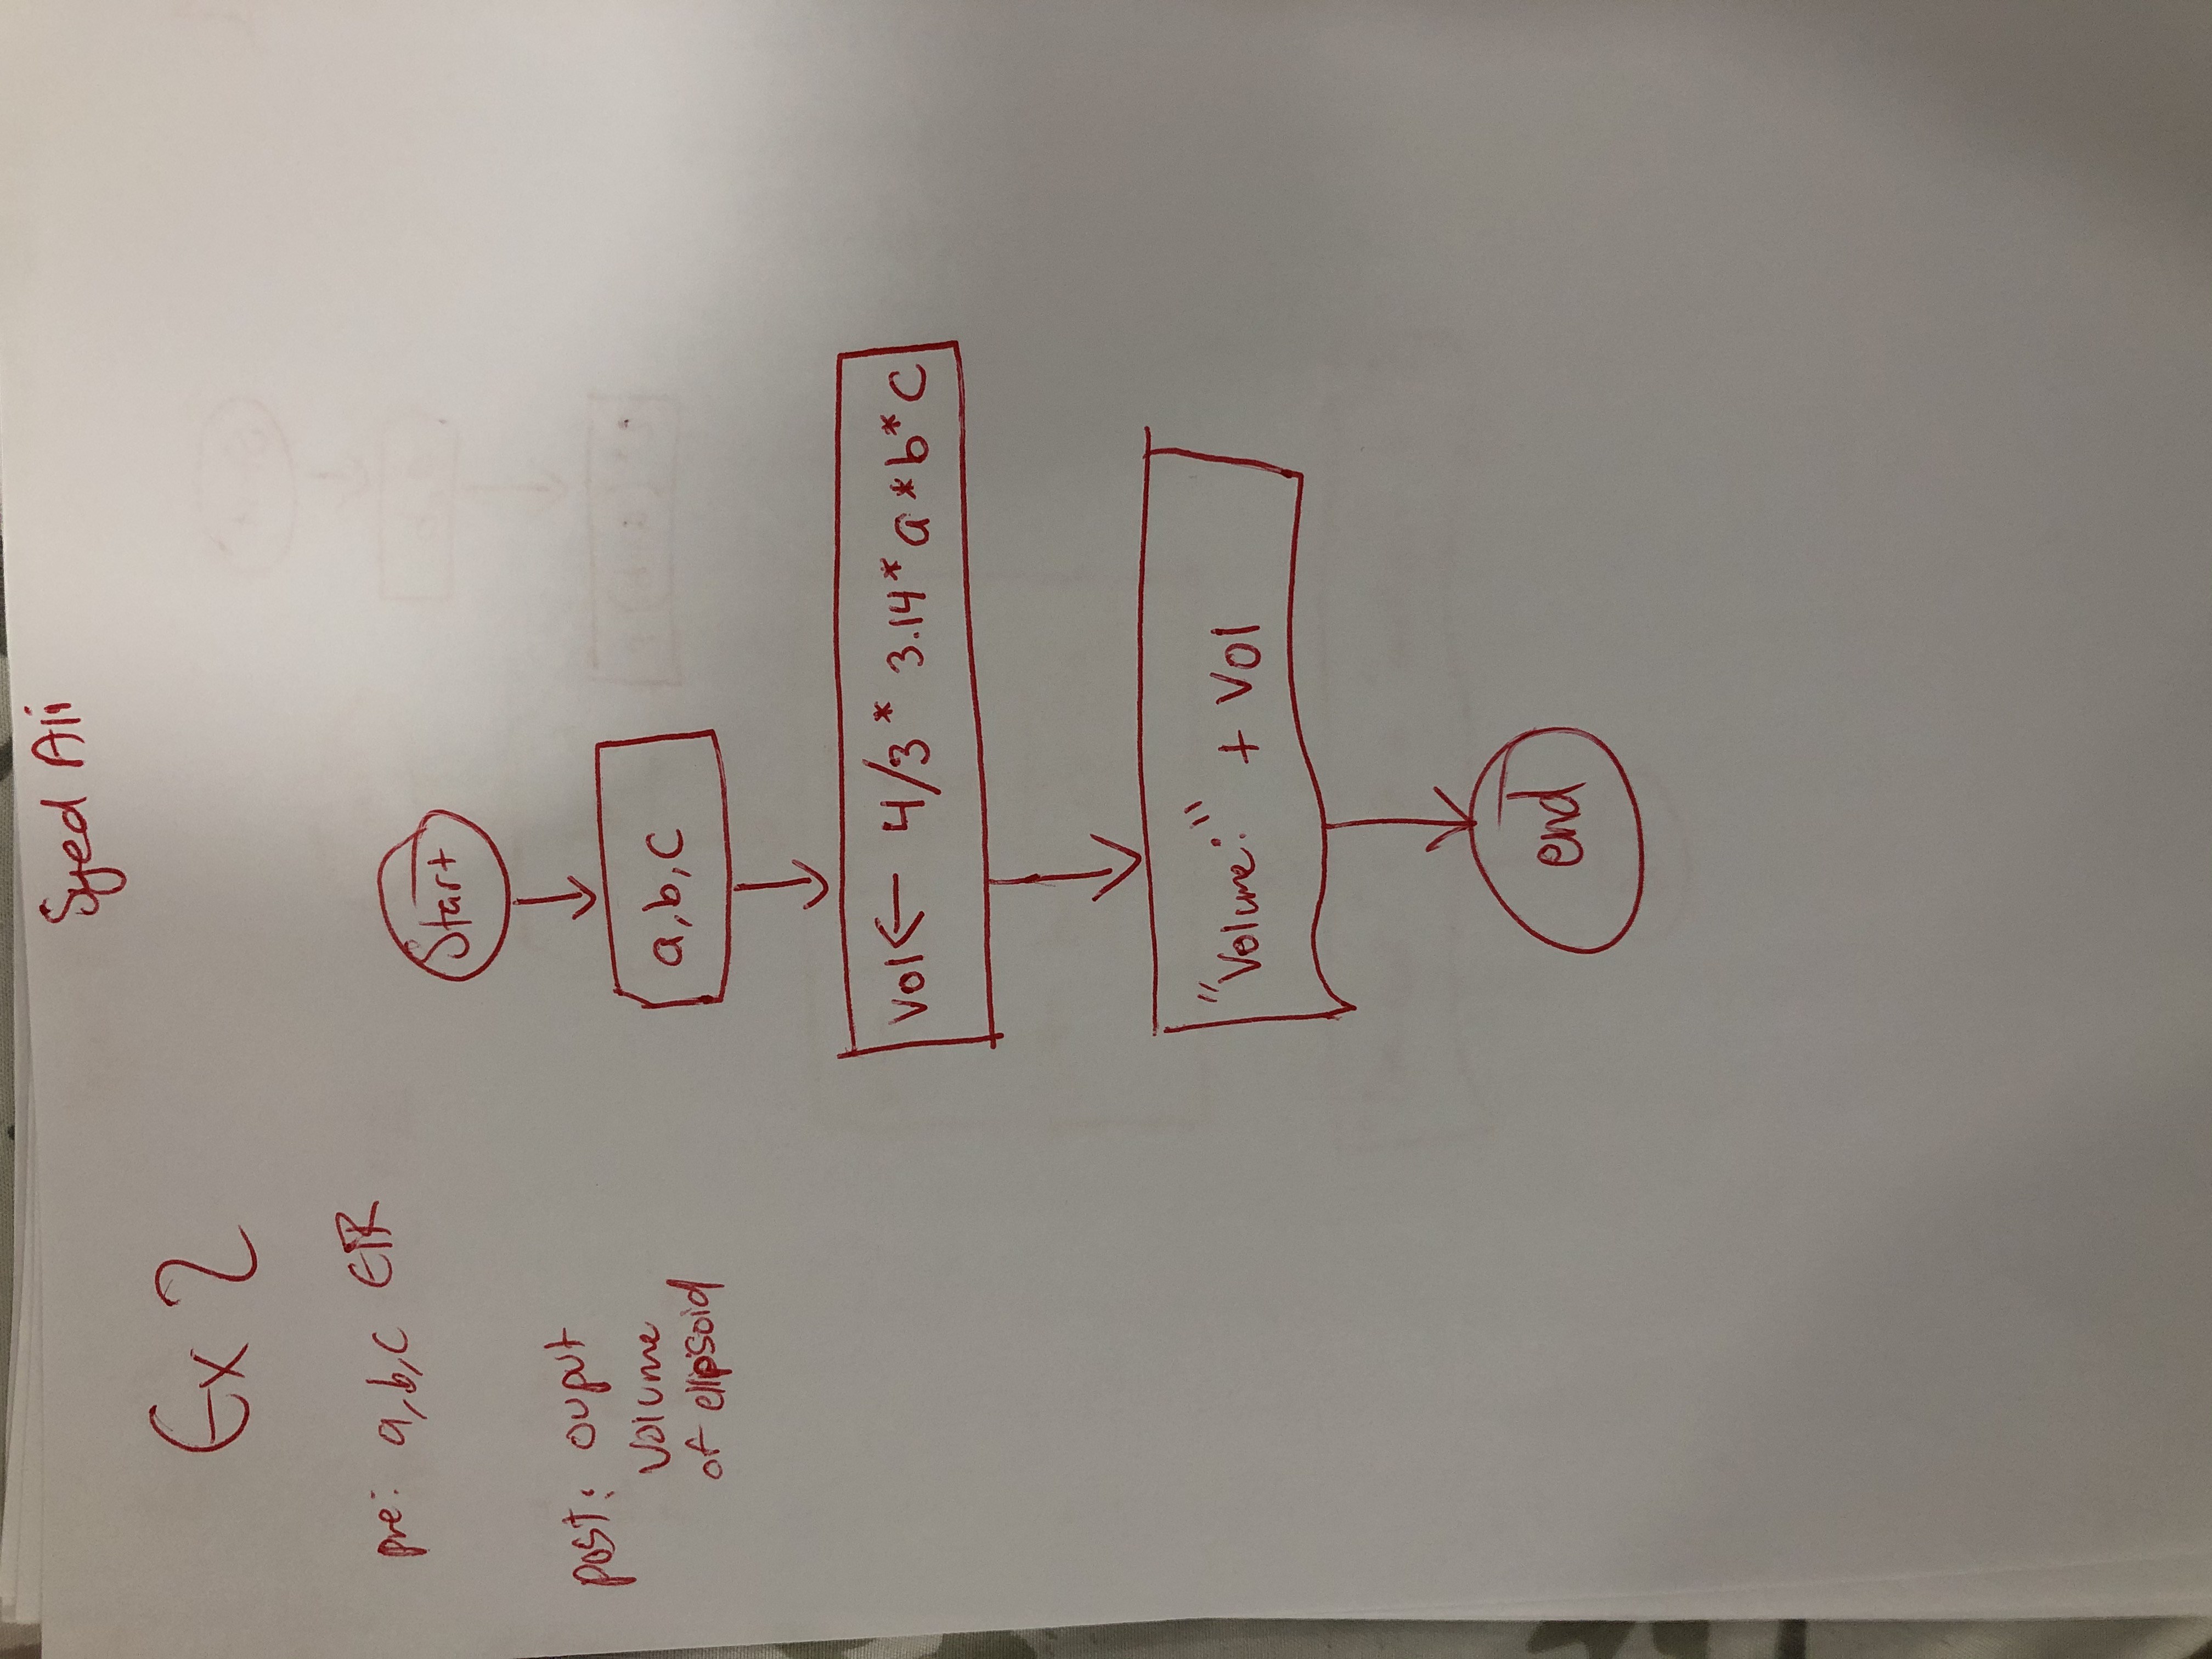 Syed Ali
Ex 2
pre: a,b,c ∈ℝ
post: ouput
Volume
of ellipsoid
Start
a,b,c
Vol← 4/3* 3.14* a*b*c
"Volume:" + Vol
end